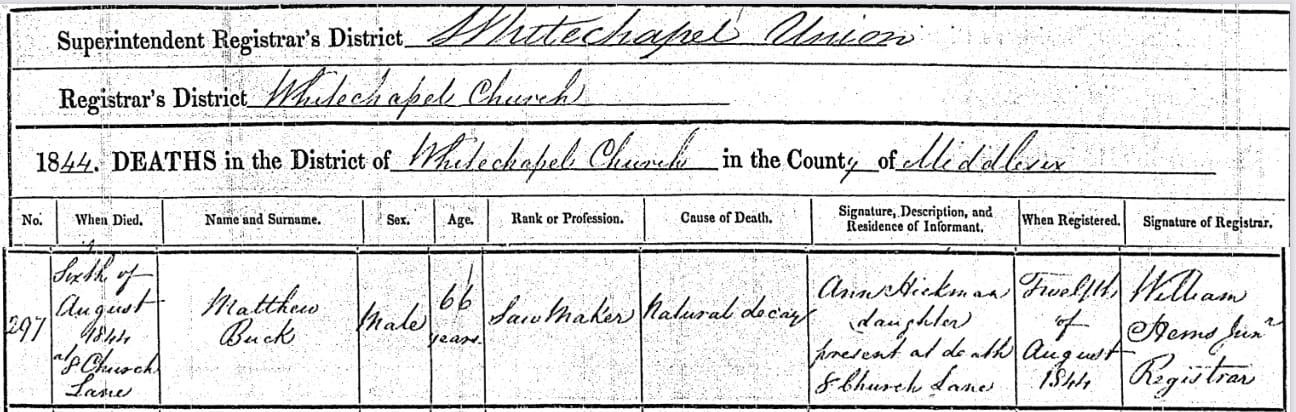 Superintendent Registrar's District Whitechapel Union
Registrar's District Whitechapel Church
1844. DEATHS in the District of Whitechapel Church in the County of Middlesex
No. When Died. Name and Surname. Sex. Age. Rank or Profession. Cause of Death. Signature, Description, and Residence of Informant. When Registered. Signature of Registrar.
297
Sixth of
August
1844
at 8 Church
Lane
Matthew
Buck
Male
66
years
Saw Maker
Natural decay
Ann Hickman
daughter
present at death
8 Church Lane
Twelfth
of
August
1844
William
Stems Junr
Registrar